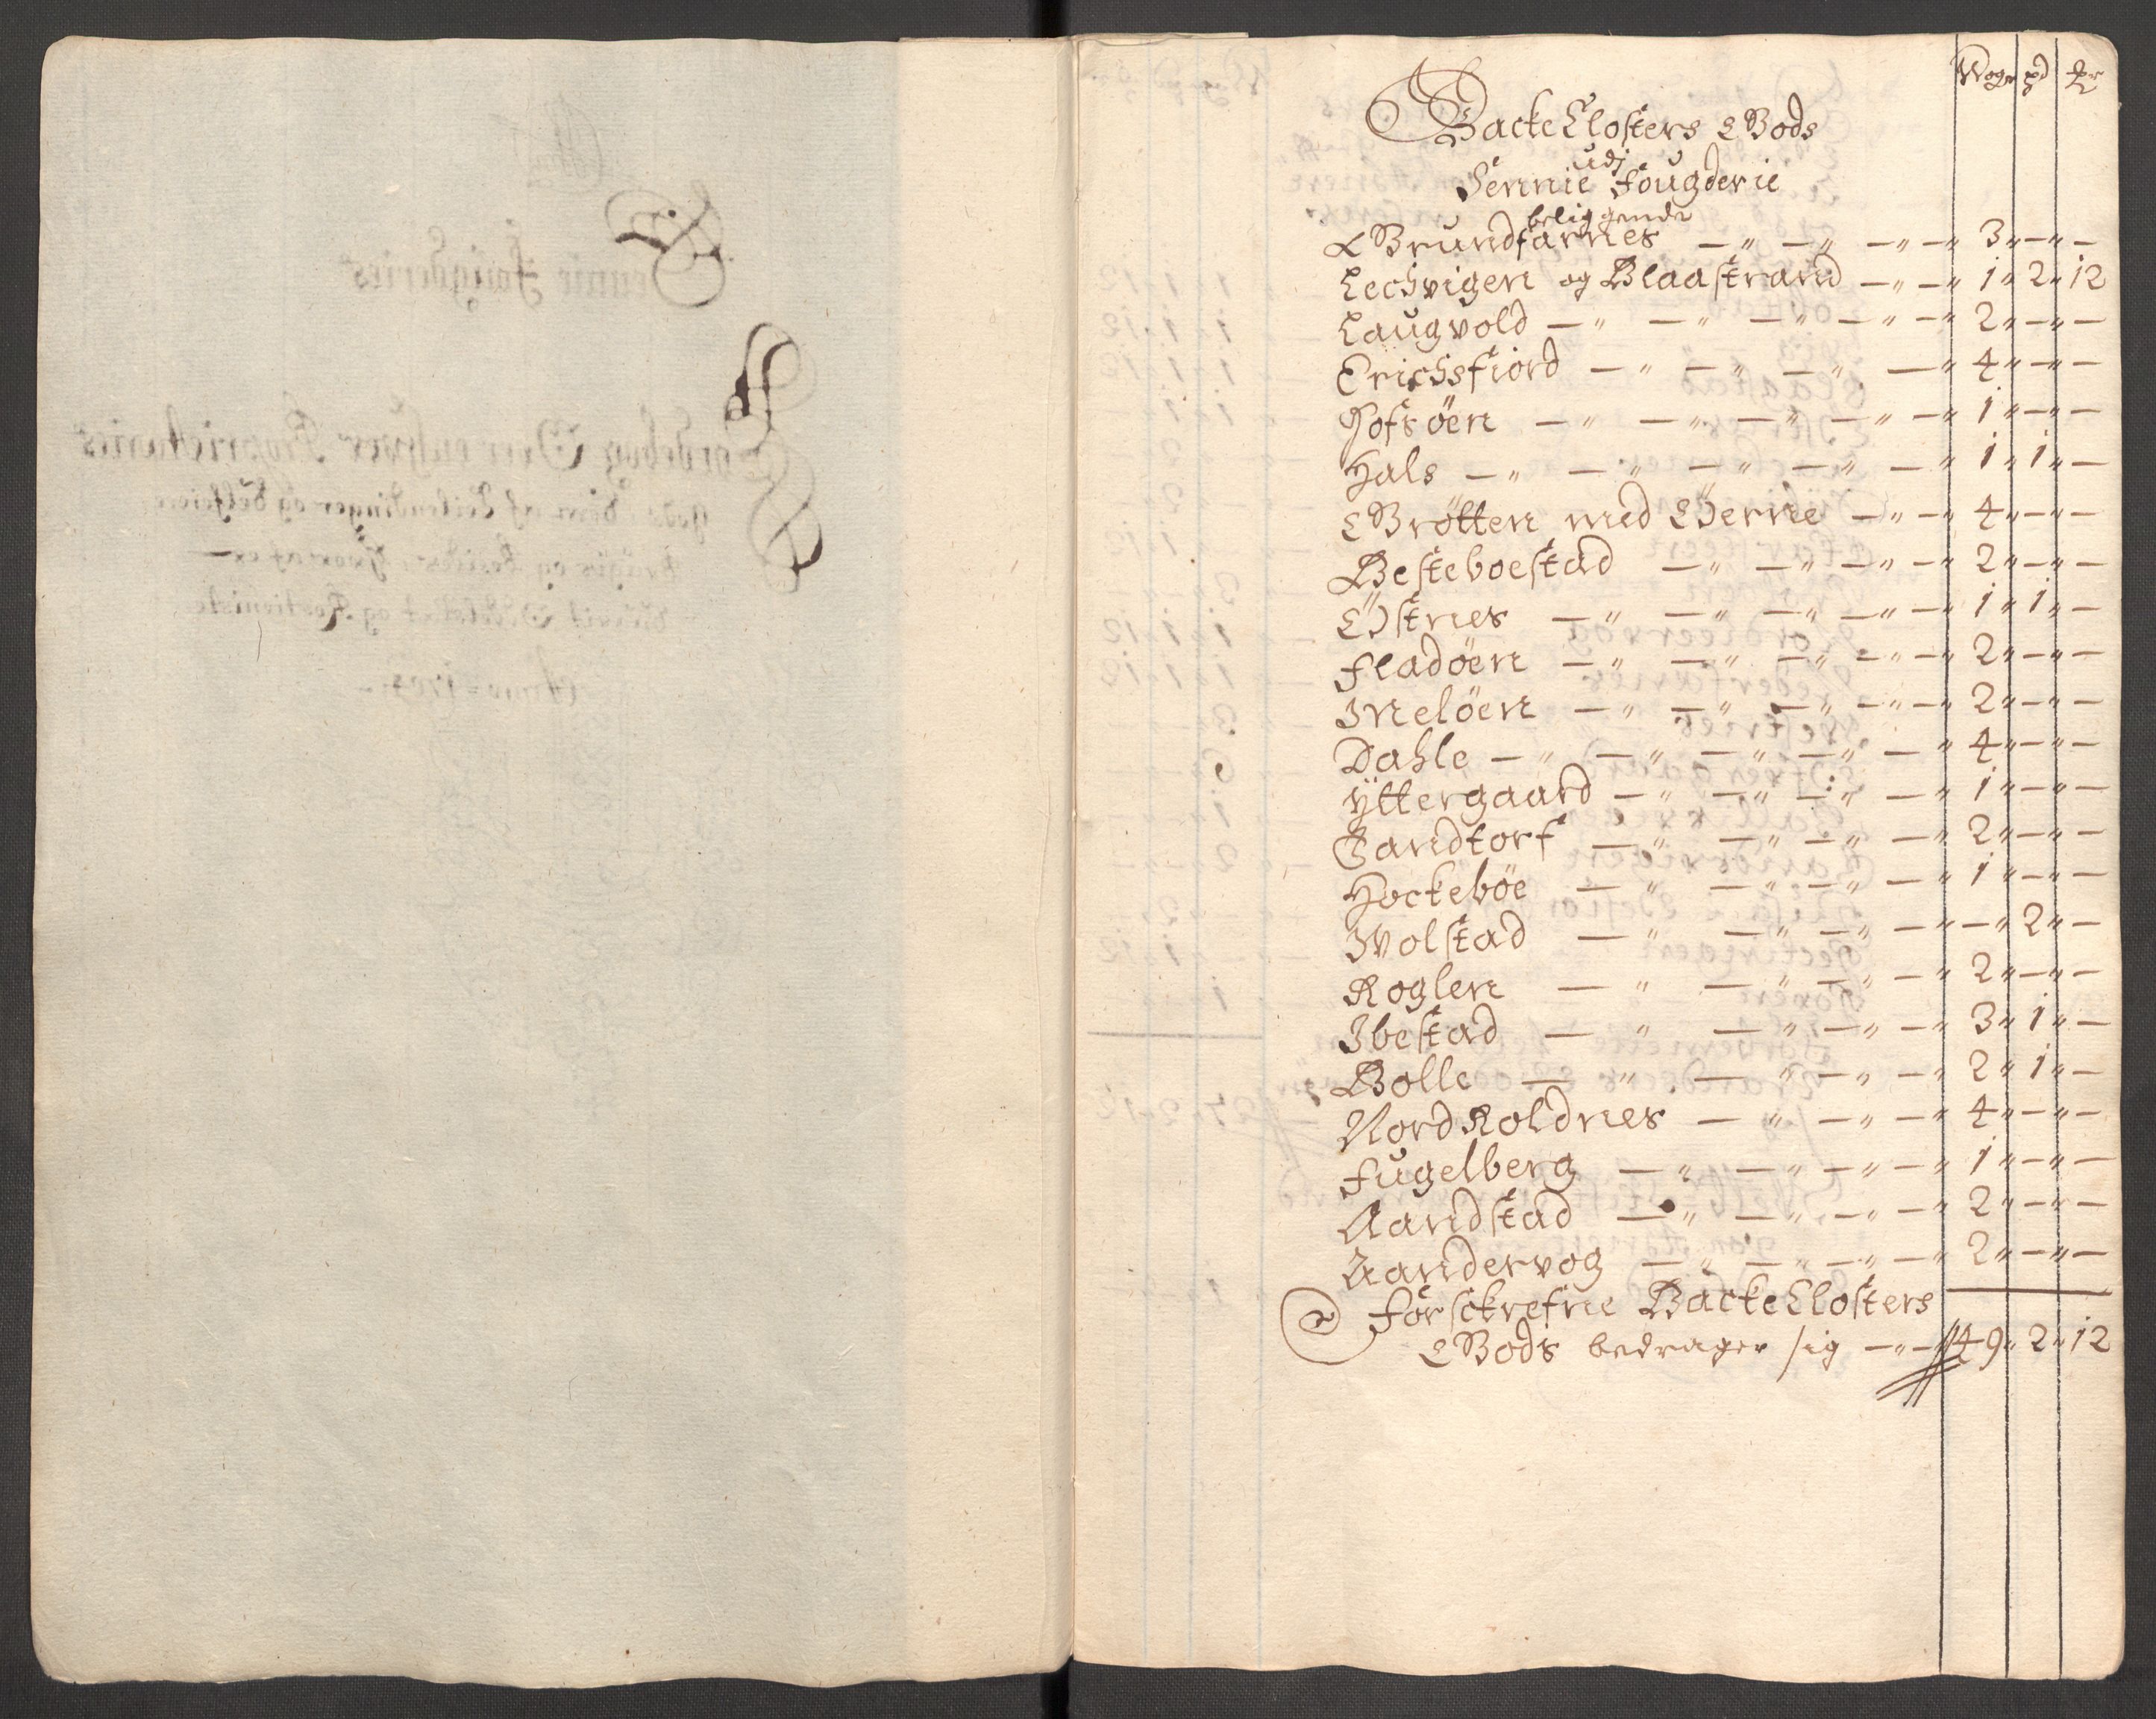 Woger pd ℔r
Backe Closters Gods
udj
Sennie Fougderie
beliggende
Grundfarnes — „ — „ — „ — „ 3 „ — „ —
Lechvigen og Blaastrand — „ — „ 1 „ 2 „ 12
Laugvold — „ — „ — „ — „ — „ 2 „ — „ —
Erichsfiord — „ — „ — „ — „ 4 „ — „ —
Hofsöen — „ — „ — „ — „ — „ 1 „ — „ —
Hals — „ — „ — „ — „ — „ 1 „ 1 „ —
Grötten med Öerne — „ — „ 4 „ — „ —
Besteboestad — „ — „ — „ — „ 2 „ — „ —
Östnes — „ — „ — „ — „ — „ 1 „ 1 „ —
Fladöen — „ — „ — „ — „ — „ 2 „ — „ —
Meelöen — „ — „ — „ — „ — „ 2 „ — „ —
Dahle — „ — „ — „ — „ — „ 4 „ — „ —
Yttergaard — „ — „ — „ — „ 1 „ — „ —
Sandtorf — „ — „ — „ — „ 2 „ — „ —
Hockeböe — „ — „ — „ — „ 1 „ — „ —
Ivolstad — „ — „ — „ — „ — „ 2 „ —
Roglen — „ — „ — „ — „ 2 „ — „ —
Ibestad — „ — „ — „ — „ 3 „ 1 „ —
Bolle — „ — „ — „ — „ 2 „ 1 „ —
Nord Roldnes — „ — „ — „ 4 „ — „ —
Fugelberg — „ — „ — „ — „ 1 „ — „ —
Aandstad — „ — „ — „ — „ 2 „ — „ —
Zandervog — „ — „ — „ — „ 2 „ — „ —
Forsckrefne Backe Closters
Gods bedrager sig — „ — 49 „ 2 „ 12